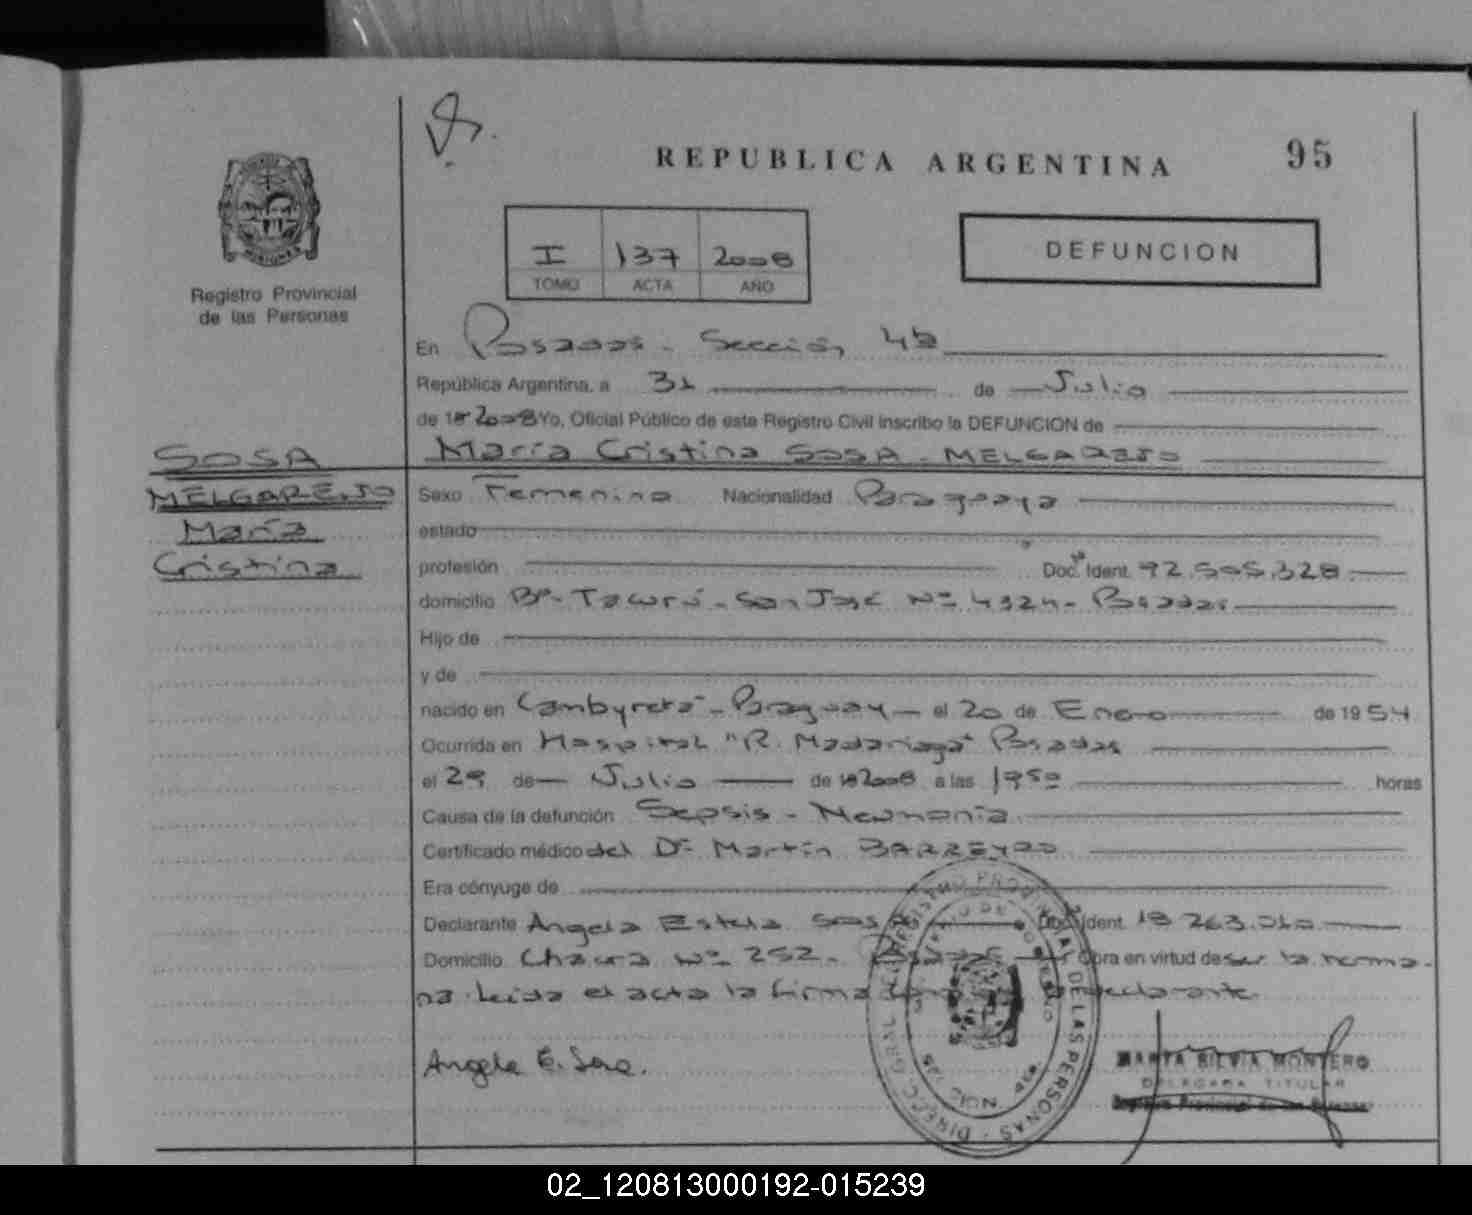 REPUBLICA ARGENTINA
95
MISIONES
Registro Provincial
de las Personas
I 137 2008
TOMO ACTA AÑO
DEFUNCION
En Posadas - Sección 4ta
República Argentina, a 31 de Julio
de 19 2008 Yo, Oficial Público de este Registro Civil inscribo la DEFUNCION de
María Cristina SOSA - MELGAREJO
SOSA
MELGAREJO
María
Cristina
Sexo Femenino Nacionalidad Paraguaya
estado
profesión Doc. Ident. 92.505.328
domicilio Bº - Tacurú - San José Nº 4324 - Posadas
Hijo de
y de
nacido en Cambyretá - Paraguay - el 20 de Enero de 1954
Ocurrida en Hospital "R. Madariaga" Posadas
el 29 de Julio de 19 2008 a las 1950 horas
Causa de la defunción Sepsis - Neumonía
Certificado médico del Dr Martín BARREYRO
Era cónyuge de
Declarante Angela Estela Sosa Doc. Ident. 18 263.010
Domicilio Chacra Nº 252 - Posadas Obra en virtud de ser la herma-
na. Leída el acta la firma declarante
Angela E. Sosa.
DIRECC. GRAL. DEL REGISTRO PROVINCIAL DE LAS PERSONAS
MARTA SILVIA MONTERO
DELEGADA TITULAR
Registro Provincial de las Personas
02_120813000192-015239